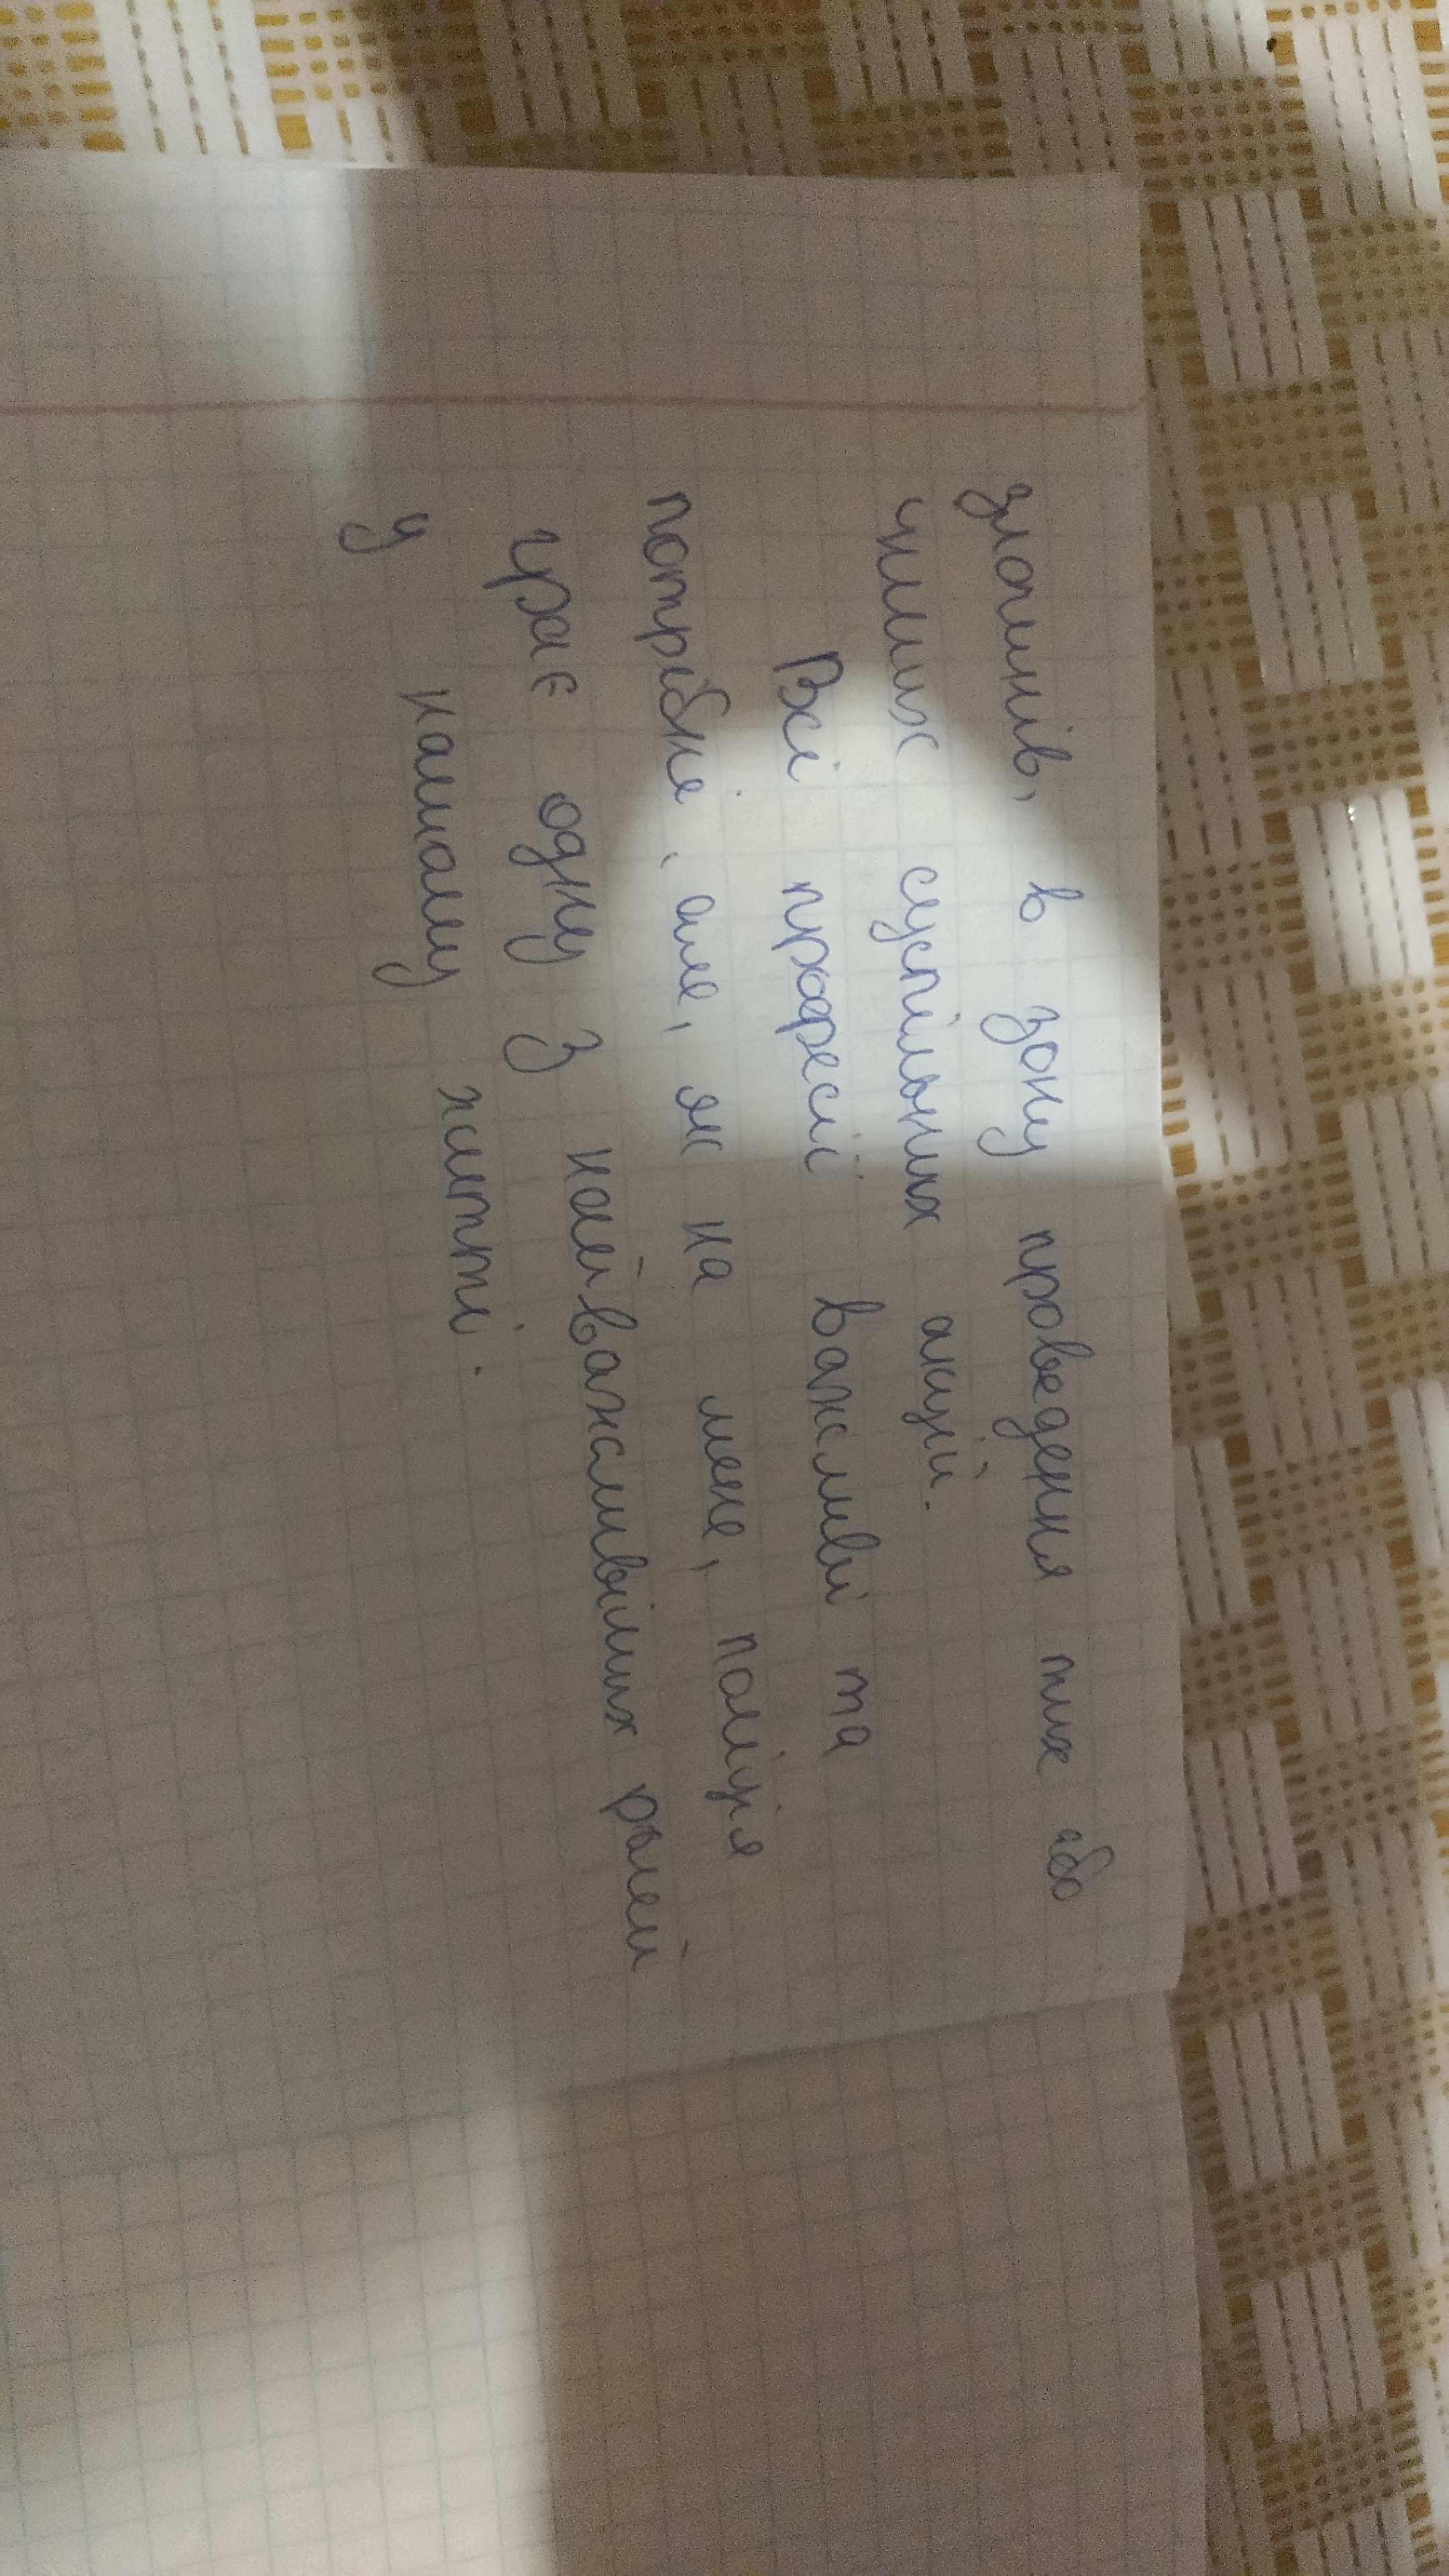 злочинів, в зону проведення тих або
инших суспільних акцій.
Всі професії важливі та
потрібні, але, як на мене, поліція
грає одну з найважливіших ролей
у нашому житті.